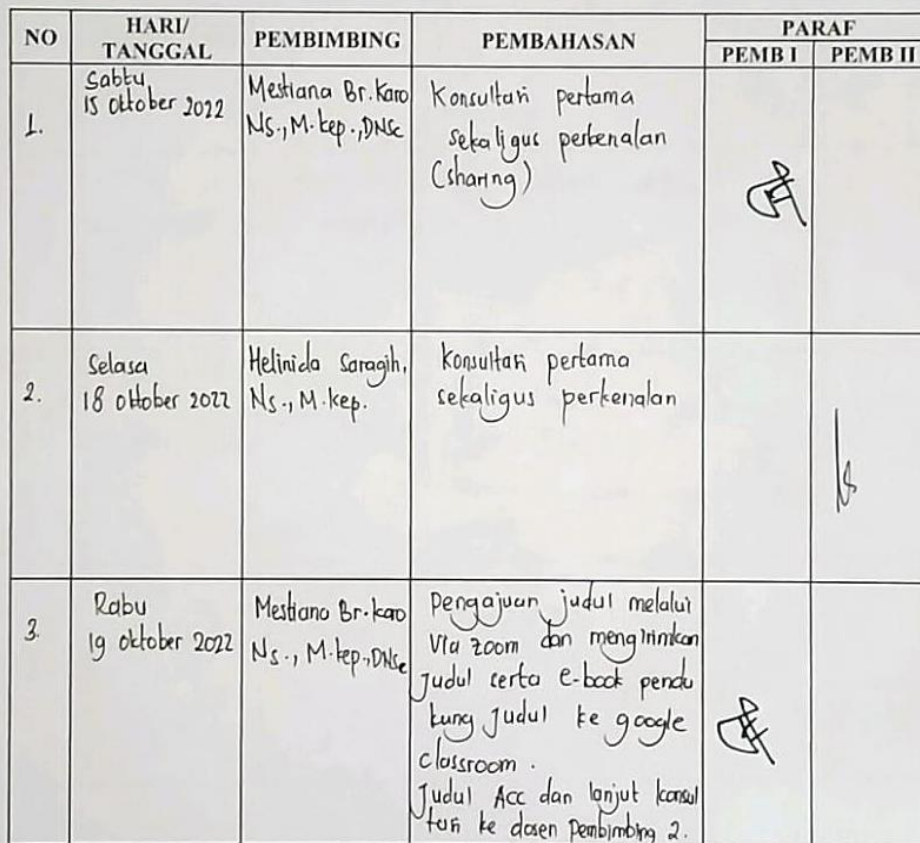 NO
HARI/
TANGGAL
PEMBIMBING
PEMBAHASAN
PARAF
PEMB I
PEMB II
1.
Sabtu
15 oktober 2022
Mestiana Br. Karo
Ns., M. kep., DNSc
Konsultasi pertama
sekaligus perkenalan
(sharing)
2.
Selasa
18 oktober 2022
Helinida Saragih,
Ns., M. kep.
Konsultasi pertama
sekaligus perkenalan
3.
Rabu
19 oktober 2022
Mestiana Br. karo
Ns., M. kep., DNSc
Pengajuan judul melalui
Via zoom dan mengirimkan
Judul serta e-book pendu
kung Judul ke google
classroom.
Judul Acc dan lanjut konsul
tasi ke dosen Pembimbing 2.